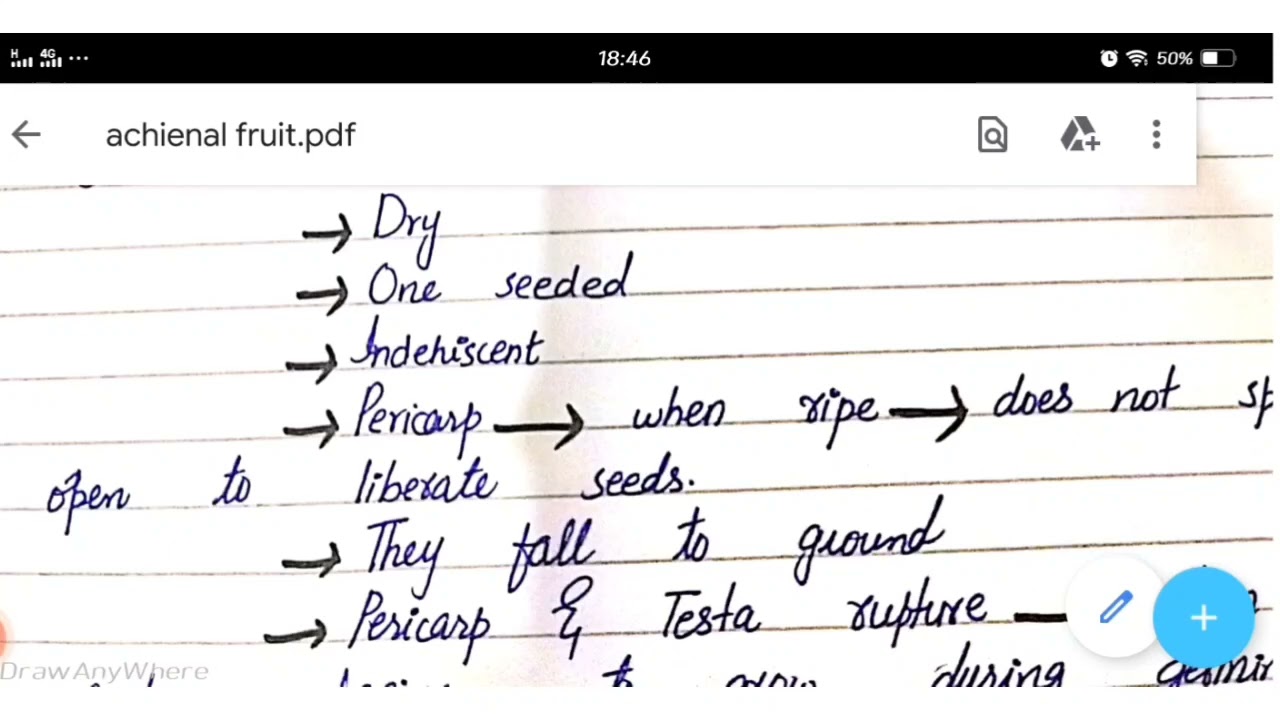 H 4G ... 18:46 50%
achienal fruit.pdf
→ Dry
→ One seeded
→ Indehiscent
→ Pericarp → when ripe → does not
open to liberate seeds.
→ They fall to ground
→ Pericarp & Testa rupture —
during
DrawAnyWhere